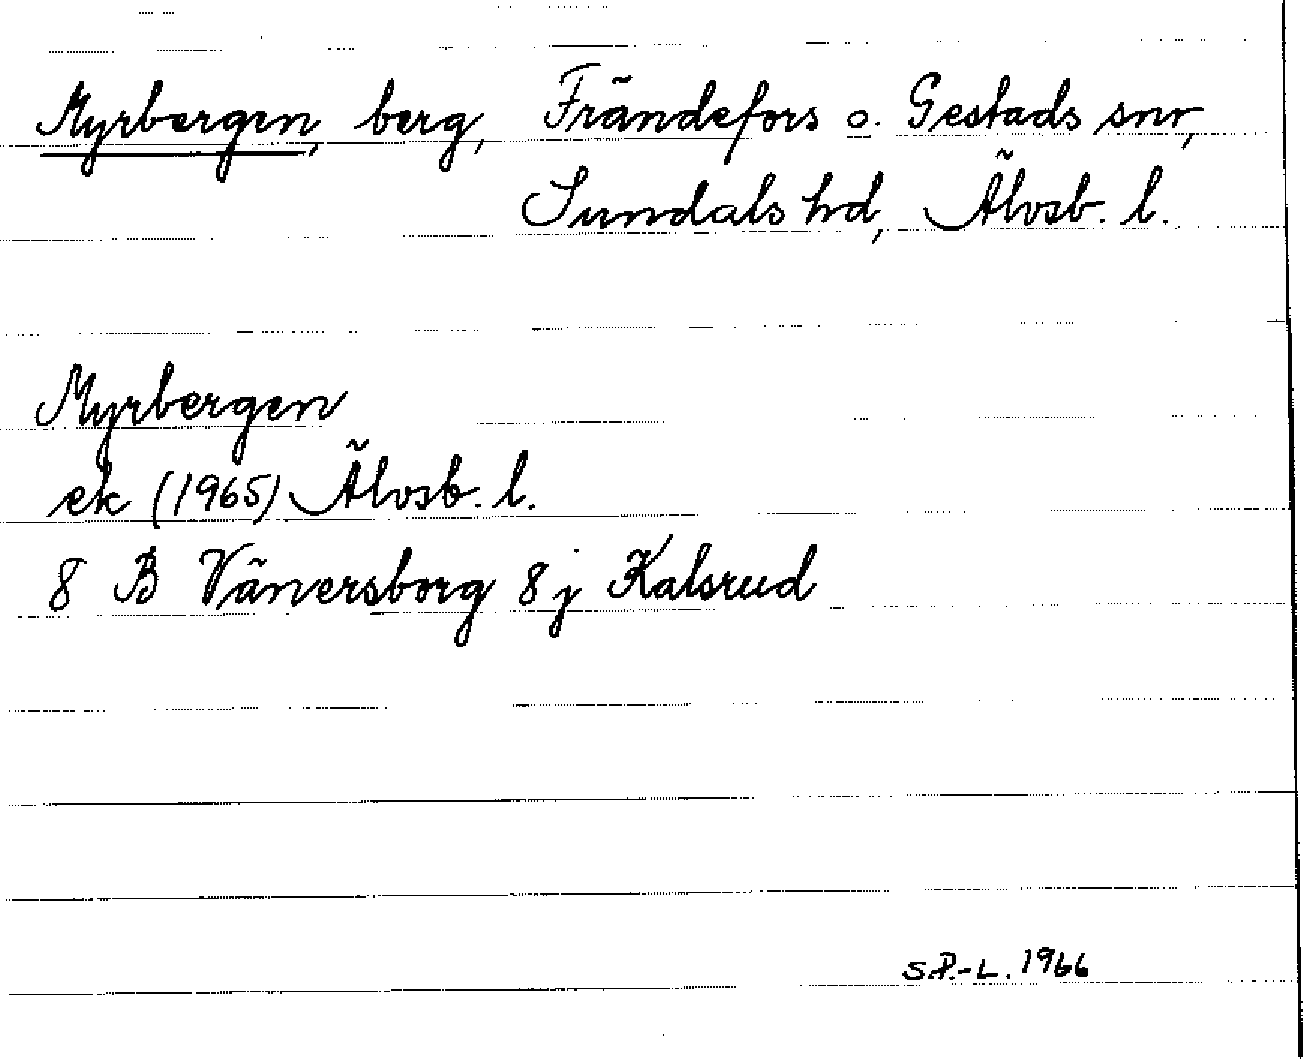 Myrbergen, berg, Frändefors o. Gestads snr,
Sundals hd, Älvsb. l.
Myrbergen
ek (1965) Älvsb. l.
8 B Vänersborg 8 j Kalsrud
S.P.-L. 1966